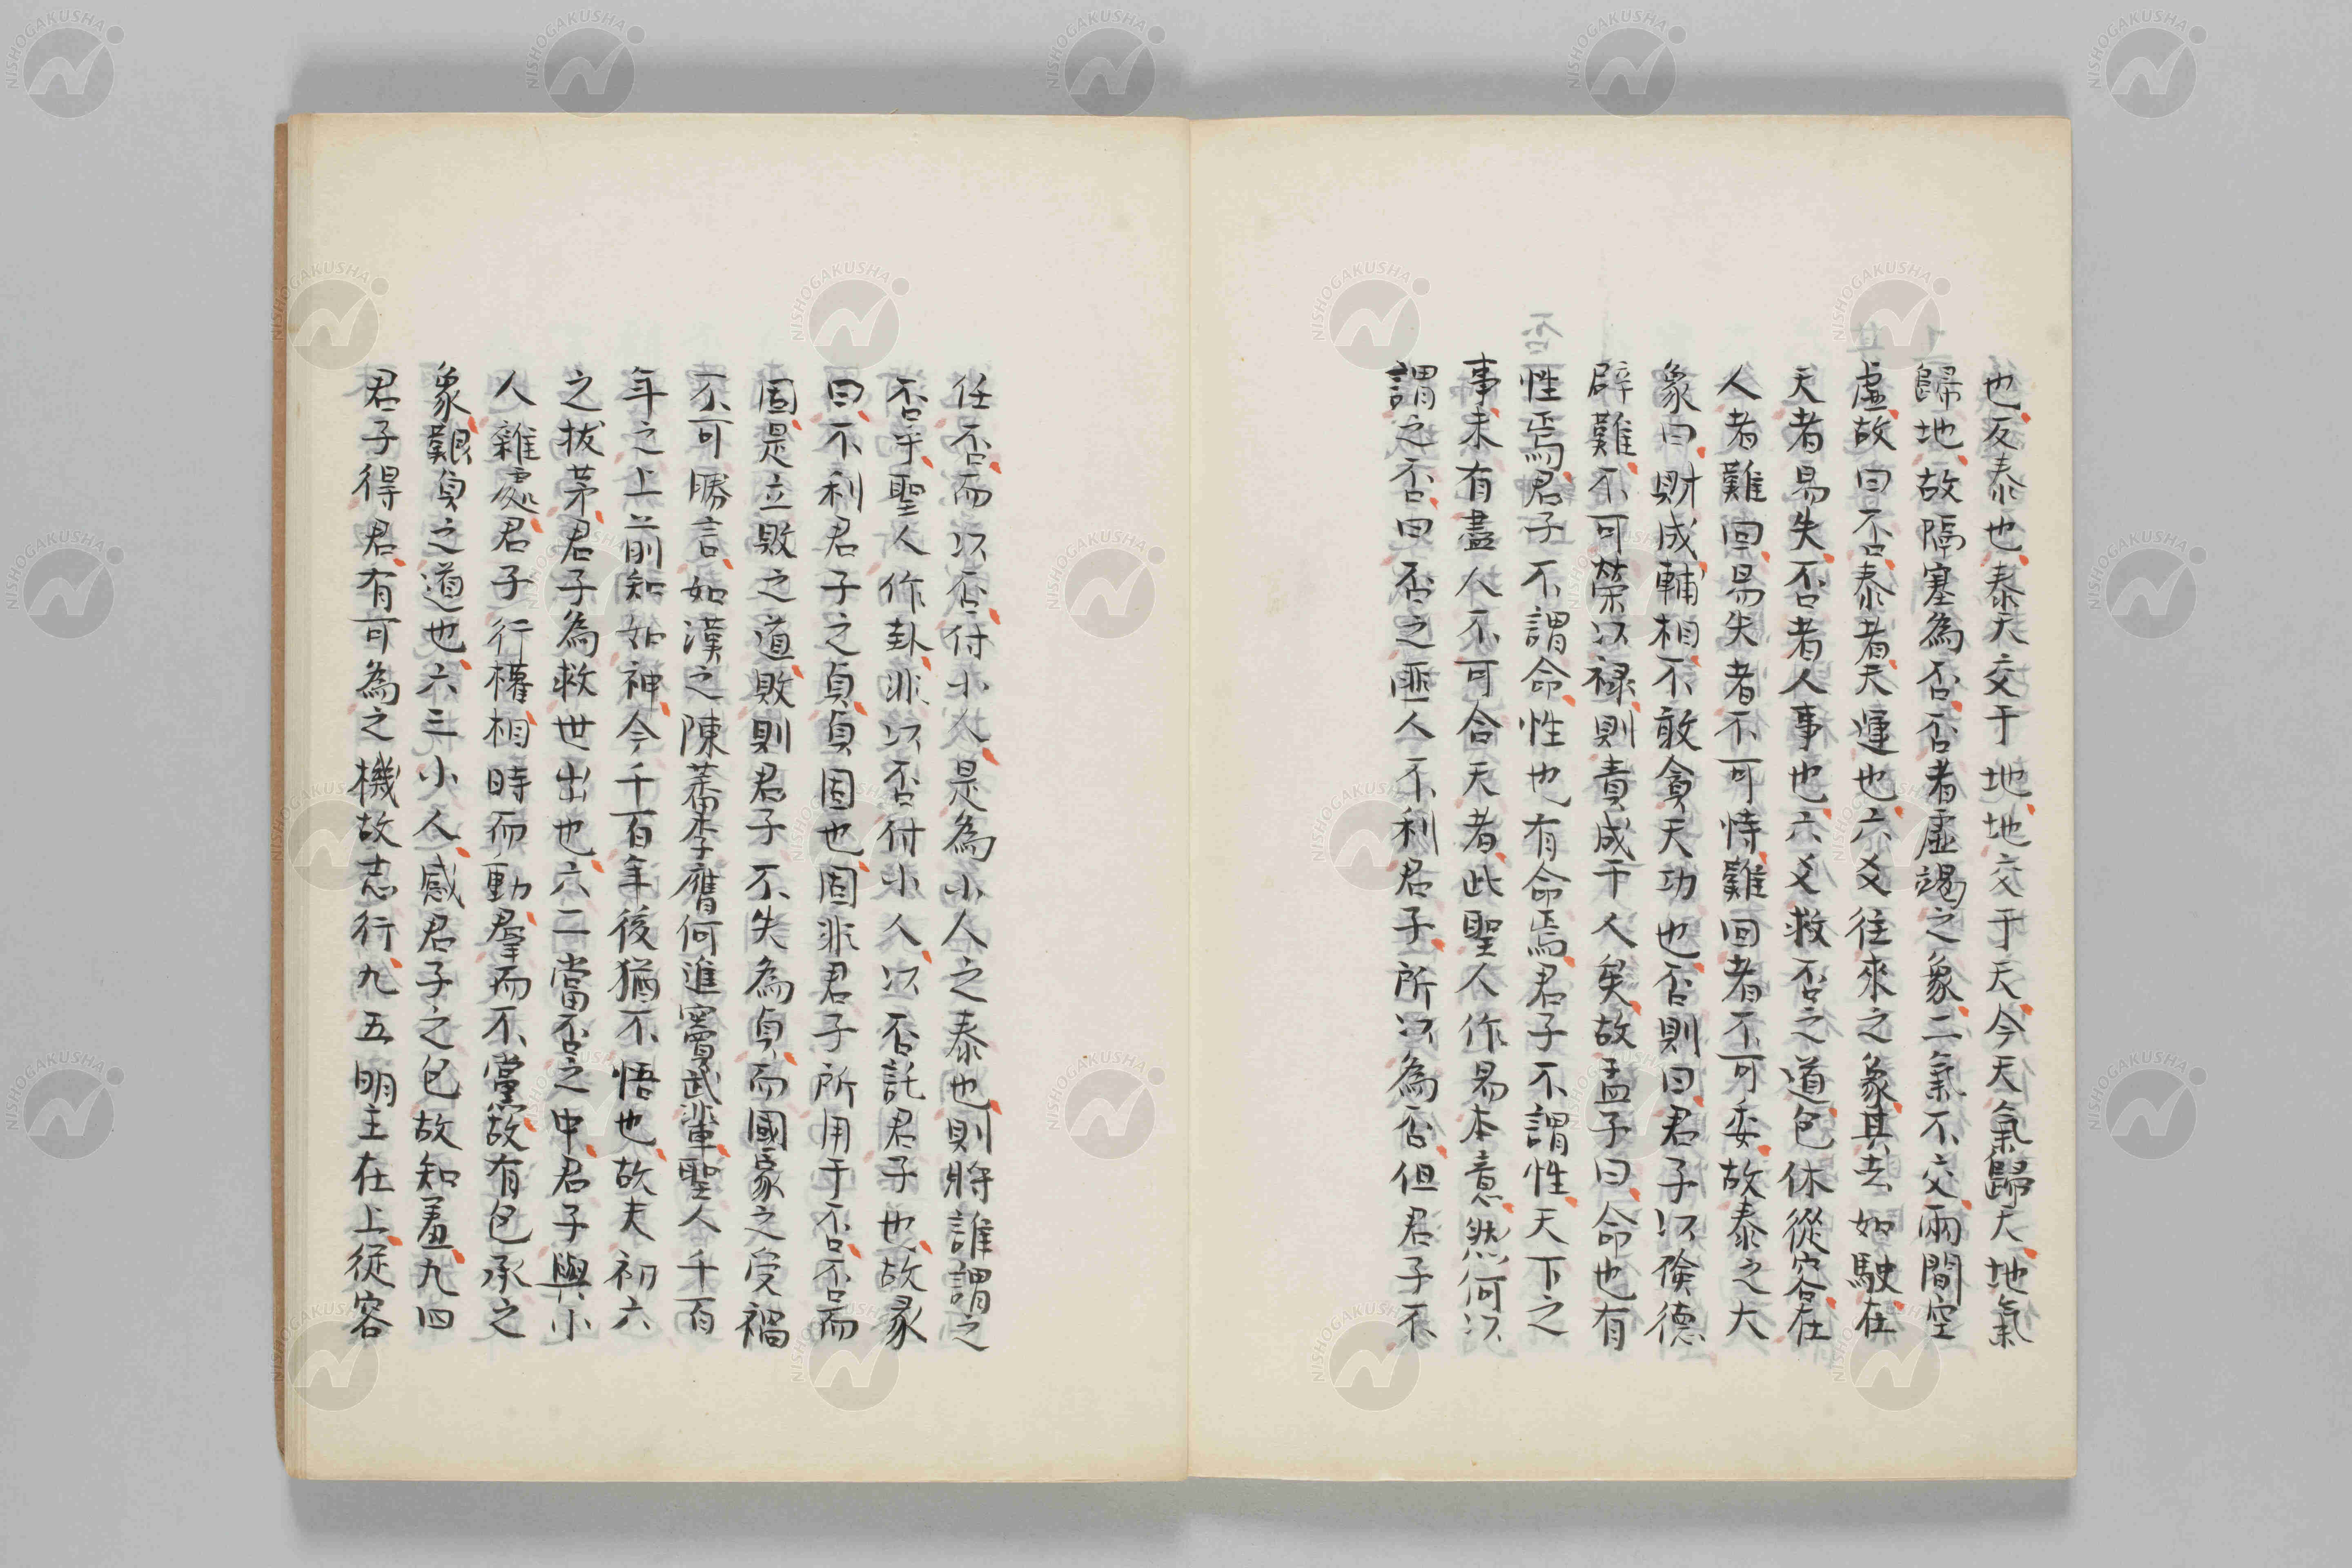 也反泰也泰天交于地地交于天今天氣歸天地氣
歸地故隔塞為否否者虛竭之象二氣不交兩間空
虛故曰不否泰者天運也六爻往來之象其去如駛在
天者易失否者人事也六爻救否之道包休從容在
人者難回易失者不可恃難回者不可委故泰之大
象曰財成輔相不敢貪天功也否則曰君子以儉德
辟難不可榮以祿則責成干人矣故孟子曰命也有
性焉君子不謂命性也有命焉君子不謂性天下之
事未有盡人不可合天者此聖人作易本意然何以
謂之否曰否之匪人不利君子所以為否但君子不
任否而以否付小人是為小人之泰也則將誰謂之
否乎聖人作卦非以否付小人以否託君子也故彖
曰不利君子之貞貞固也固非君子所用于否否而
固是立敗之道敗則君子不失為貞而國家之受禍
不可勝言如漢之陳蕃李膺何進竇武輩聖人千百
年之上前知如神今千百年後猶不悟也故夫初六
之拔茅君子為救世出也六二當否之中君子與小
人雜處君子行權相時而動羣而不黨故有包承之
象艱貞之道也六三小人感君子之包故知羞九四
君子得君有可為之機故志行九五明主在上從容
NISHOGAKUSHA